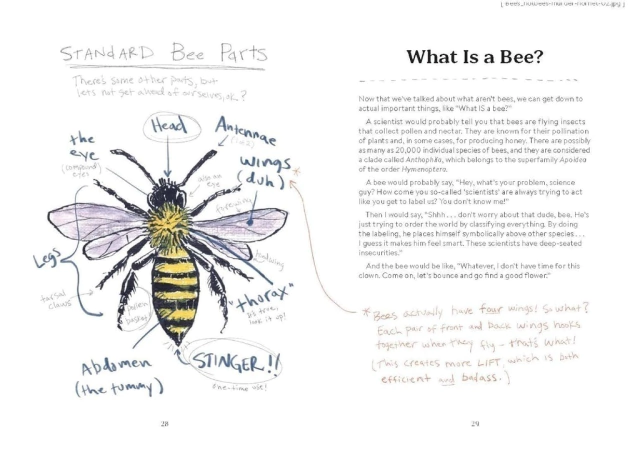 [ Bees_notbees-murder-hornet-02.jpg ]
STANDARD Bee Parts
There's some other parts, but
lets not get ahead of ourselves, ok?
the
eye
(compound
eyes)
Head
Antennae
wings*
(duh)
also an
eye
forewing
hindwing
Legs
tarsal
claws
pollen
basket
"thorax"
it's true,
look it up!
Abdomen
(the tummy)
STINGER!!
one-time use!
28
What Is a Bee?
Now that we've talked about what aren't bees, we can get down to
actual important things, like "What IS a bee?"
A scientist would probably tell you that bees are flying insects
that collect pollen and nectar. They are known for their pollination
of plants and, in some cases, for producing honey. There are possibly
as many as 20,000 individual species of bees, and they are considered
a clade called Anthophila, which belongs to the superfamily Apoidea
of the order Hymenoptera.
A bee would probably say, "Hey, what's your problem, science
guy? How come you so-called 'scientists' are always trying to act
like you get to label us? You don't know me!"
Then I would say, "Shhh . . . don't worry about that dude, bee. He's
just trying to order the world by classifying everything. By doing
the labeling, he places himself symbolically above other species . . .
I guess it makes him feel smart. These scientists have deep-seated
insecurities."
And the bee would be like, "Whatever, I don't have time for this
clown. Come on, let's bounce and go find a good flower."
* Bees actually have four wings! So what?
Each pair of front and back wings hooks
together when they fly - that's what!
(This creates more LIFT, which is both
efficient and badass.)
29